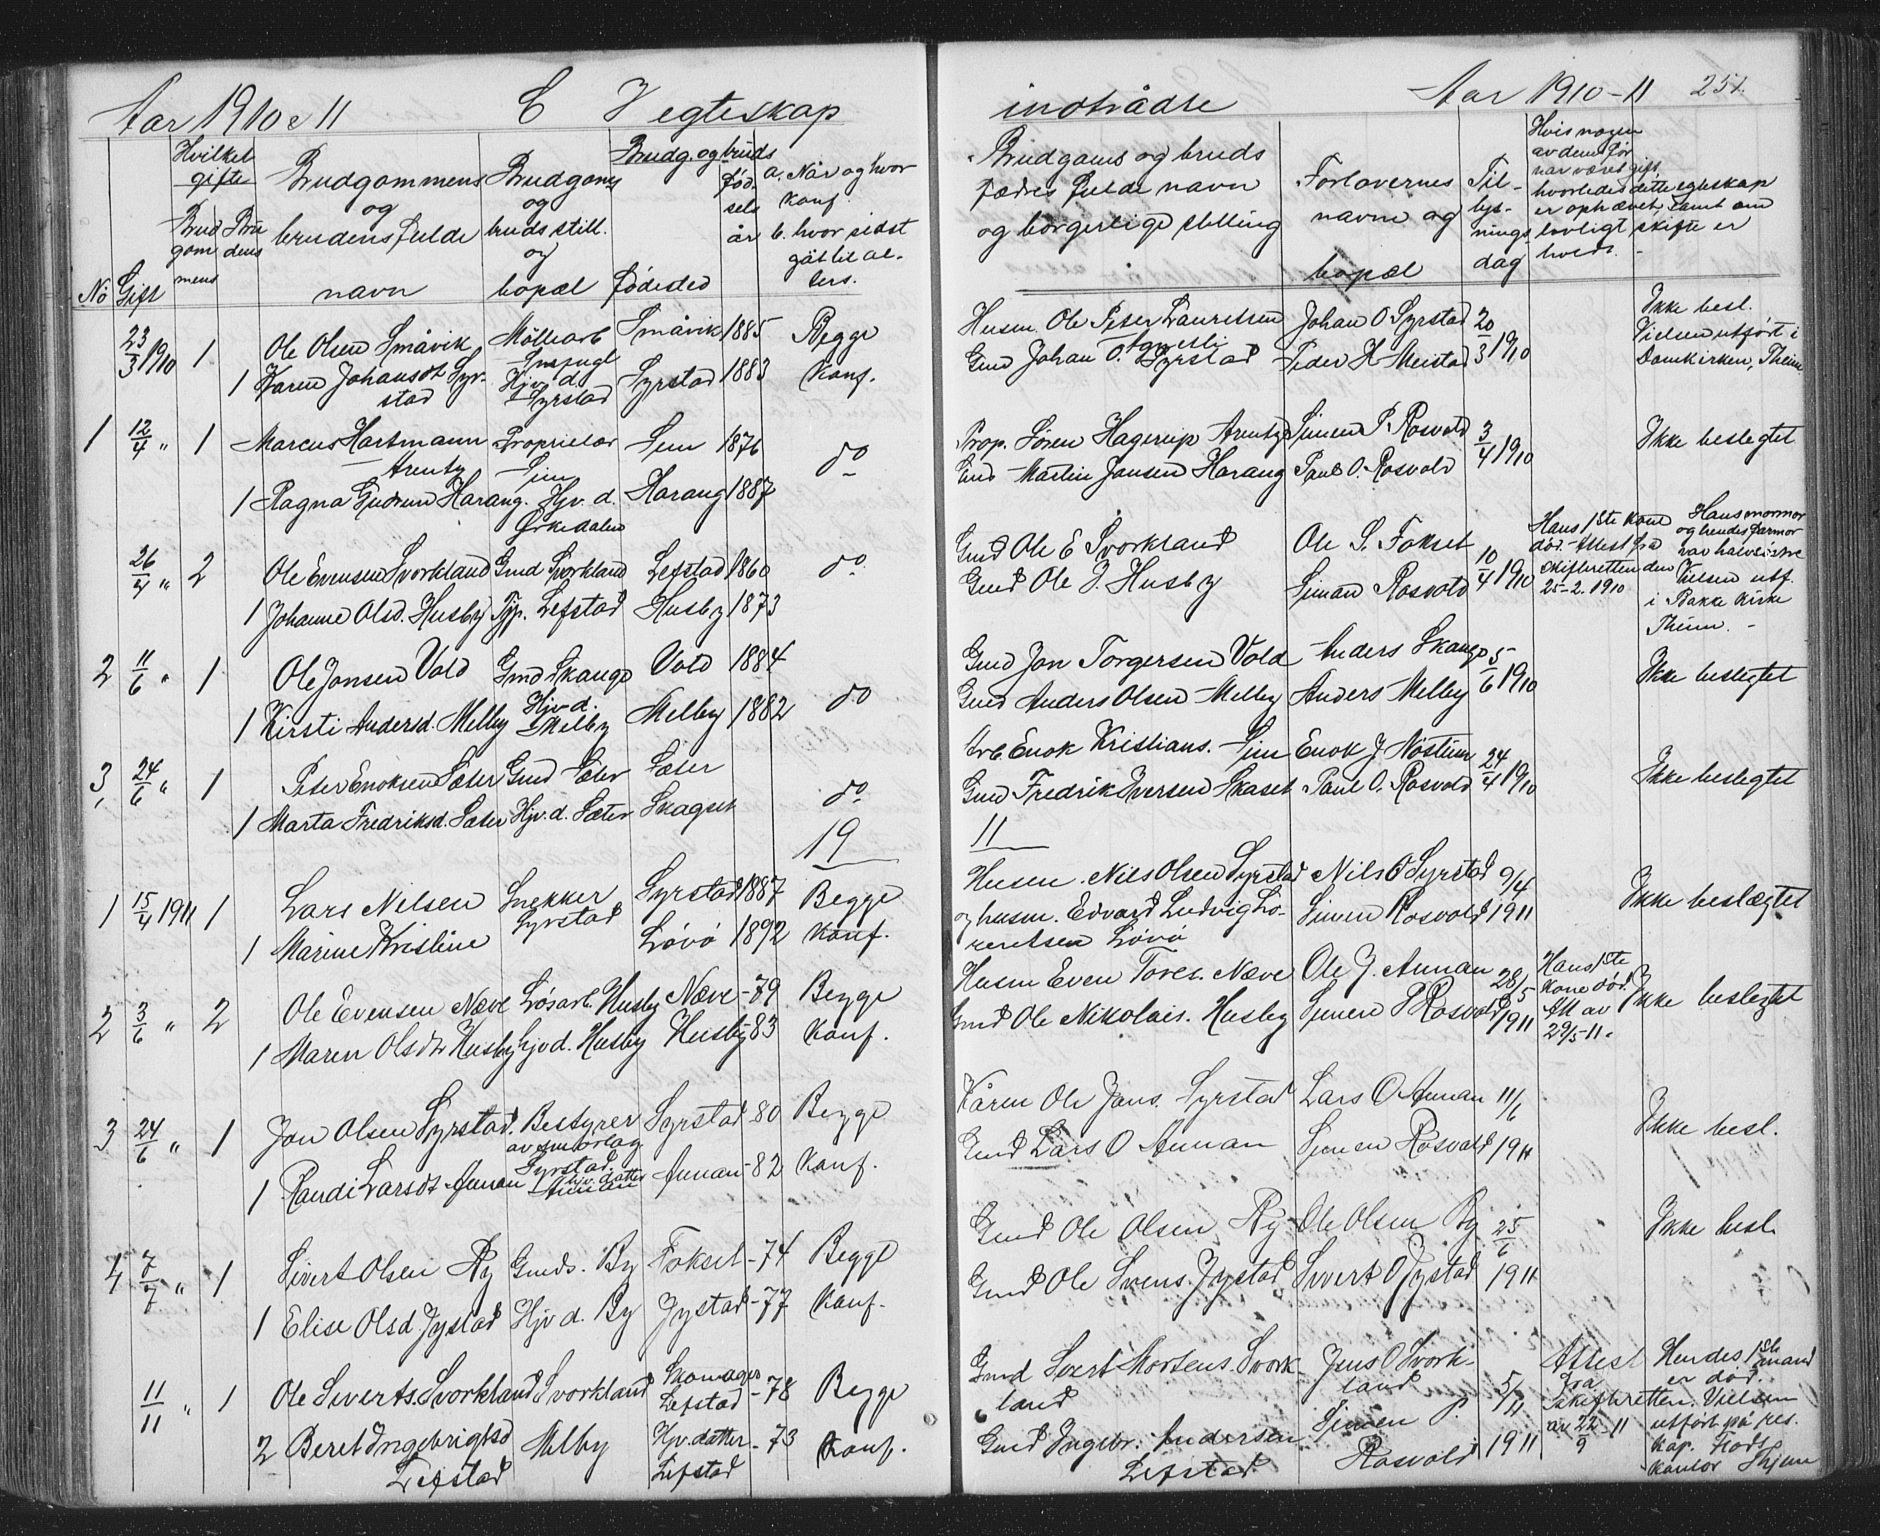 Aar 1910 & 11
C Ægteskap
Hvilket gifte
Brudgommens
Brudens
No
Gift
Brudgommens
og
brudens fulde
navn
Brudgoms
og
buds still.
og
bopæl
Brudg. og buds
fødested
fød.
sels
år
a. Når og hvor
konf.
b. hvor sidst
gåt til al-
ters.
23/3 1910 1 Ole Olsen Småvik Småvik 1885 Begge
1 Karen Johansdt Syr-
stad Hjv. d.
Syrstad Syrstad 1883 Konf.
1 12/4 " 1 Marcus Hartmann
Arentz Proprietær
Sim 1876 do
1 Ragna Gudrun Harang. Hjv. d.
Ørkedalen Harang 1887
26/4 " 2 Ole Evensen Svorkland Gmd Svorkland Lefstad 1860 do
1 Johanne Olsd. Husby Lefstad Husby 1873
2 11/6 " 1 Ole Jonsen Vold Gmd Skauge Vold 1884
1 Kirsti Andersd. Melby Hjv. d.
Melby Melby 1882 do
3, 24/6 " 1 Peter Enoksen Sæter Gmd Sæter Sæter
1 Marta Fredriksd. Sæter Hjv. d. Sæter do
19
1 15/4 1911 1 Lars Nilsen Snekker
Syrstad Syrstad 1887 Begge
1 Marine Kristine Løvø 1892 Konf.
2 3/6 " 2 Ole Evensen Næve Løsarb. Husby Næve -79 Begge
1 Maren Olsdtr Husby hjvd. Husby Husby -83 Konf.
3 24/6 " 1 Jon Olsen Syrstad. Bestyrer
av
Syrstad. Syrstad -80 Begge
1 Randi Larsdt Aunan hjv. datter
Aunan Aunan -82 Konf.
4 7/7 " 1 Sivert Olsen By Gmds. By Fokset -74 Begge
1 Elise Olsd Jystad Hjv d. By Jystad -77 Konf.
11/11 " 1 Ole Siverts. Svorkland Svorkland Skomager
Lefstad -78 Begge
2 Beret Ingebrigtsd
Lefstad Melby Hjv. datter
Lefstad -73 Konf.
indtrådte
Aar 1910-11
251.
Brudgams og bruds
fædres fulde navn
og borgerlige stilling
Forlovernes
navne og
bopæl
Til-
lys-
nings
dag
Hvis nogen
av dem før
har været gift,
hvorledes dette egteskap
er ophævet, samt om
lovligt skifte er
holdt. -
Husm. Ole Peter Lauritsen Johan O. Syrstad 20/3 1910 Ikke besl.
Gmd Johan O. Syrstad Peder K Meistad
Vielsen utført i
Domkirken, Thjem
Prop. Søren Hagerup Arentz Simen P. Rosvold 3/4 1910 Ikke beslegtet
Gmd Martin Jansen Harang Paul O. Rosvold
Gmd Ole E Svorkland Ole S. Fokset 10/4 1910
Gmd Ole J. Husby Siman Rosvold
Hans 1ste kone
død. - Attest fra
skifteretten den
25-2. 1910
Hans mormor
og hendes farmor
var halvsistre
Vielsen utf.
i Bakke kirke
Thjem. -
Gmd Jon Torgersen Vold Anders Skauge 5/6 1910 Ikke beslegtet
Gmd Anders Olsen Melby Anders Melby
Arb Enok Kristians. Sim Enok J Nostum 24/4 1910 Ikke beslegtet
Gmd Fredrik Iversen Skaset Paul O. Rosvold
11
Husm. Nils Olsen Syrstad Nils O Syrstad 9/4 Ikke beslægtet
og husm. Edvard Ludvig Lo-
rentsen Løvø Simen Rosvold 1911
Husm Even Tores. Næve Ole J. Aunan 28/5 Ikke beslegtet
Gmd Ole Nikolais. Husby Simen P Rosvold 1911
Hans 1ste
kone død.
Att av
29/5-11.
Kåren Ole Jons. Syrstad Lars O Aunan 11/6 Ikke besl.
Gmd Lars O Aunan Simen Rosvold 1911
Gmd Ole Olsen By Ole Olsen By 25/6 Ikke besl.
Gmd Ole Svens. Jystad Sivert O Jystad 1911
Gmd Sivert Mortens. Svork-
land Jens O Svork-
land 5/11
Gmd Ingebr. Andersen
Lefstad Simen P.
Rosvold 1911
Attest
fra
Skifteretten.
av 22/9-11
Hendes 1ste mand
er død.
Vielsen
utført på res.
kap. Flods
kontor Thjem